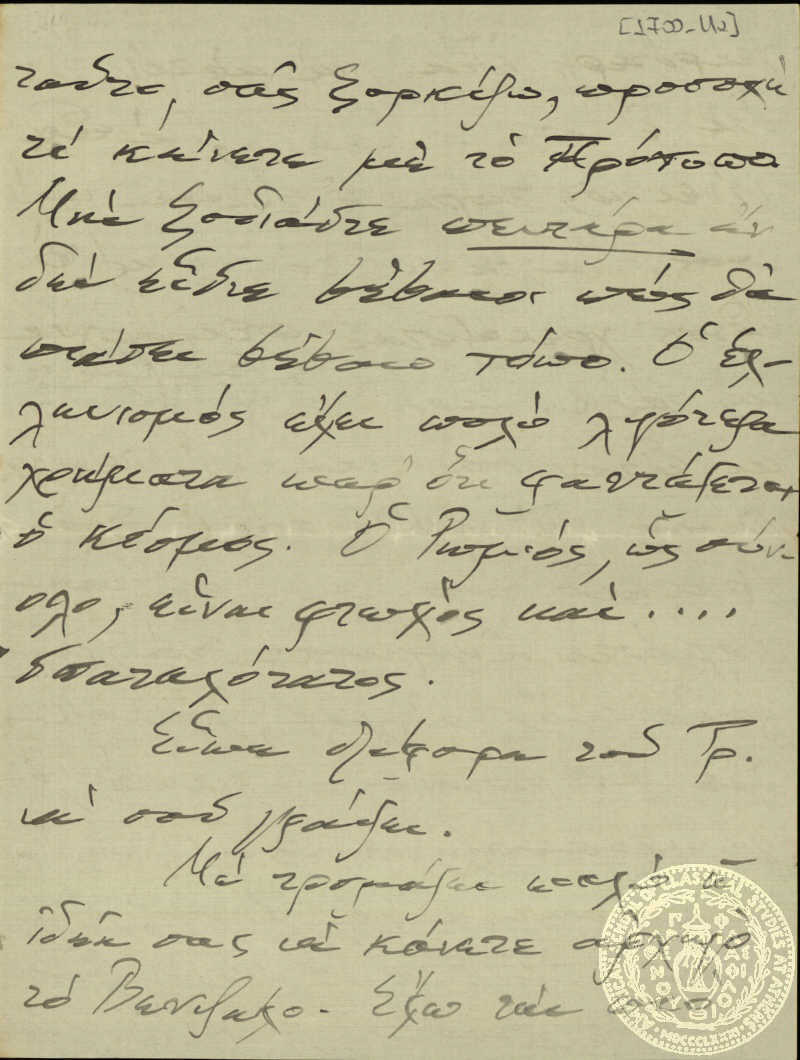 τοῦτο, σᾶς ξορκίζω, προσοχή
τί κάνετε μὲ τὸ Πρότυπο.
Μὴ ξοδιάστε πεντάρα ἂν
δὲν εἶστε βέβαιοι πὼς θὰ
πιάσει βέβαιο τόπο. Ὁ ἑλ-
ληνισμὸς ἔχει πολὺ λιγότερα
χρήματα παρ' ὅτι φαντάζεται
ὁ κόσμος. Ὁ Ρωμιός, ὡς σύν-
ολο, εἶναι φτωχὸς καὶ ....
σπαταλότατος.
Εἶπα τοῦ Γρ.
νὰ σοῦ γράψει.
Μὲ τρομάζει πολὺ ἡ
ἰδέα σας νὰ κάνετε ἀρχηγὸ
τὸ Βενιζέλο. Ἔχω τὴν